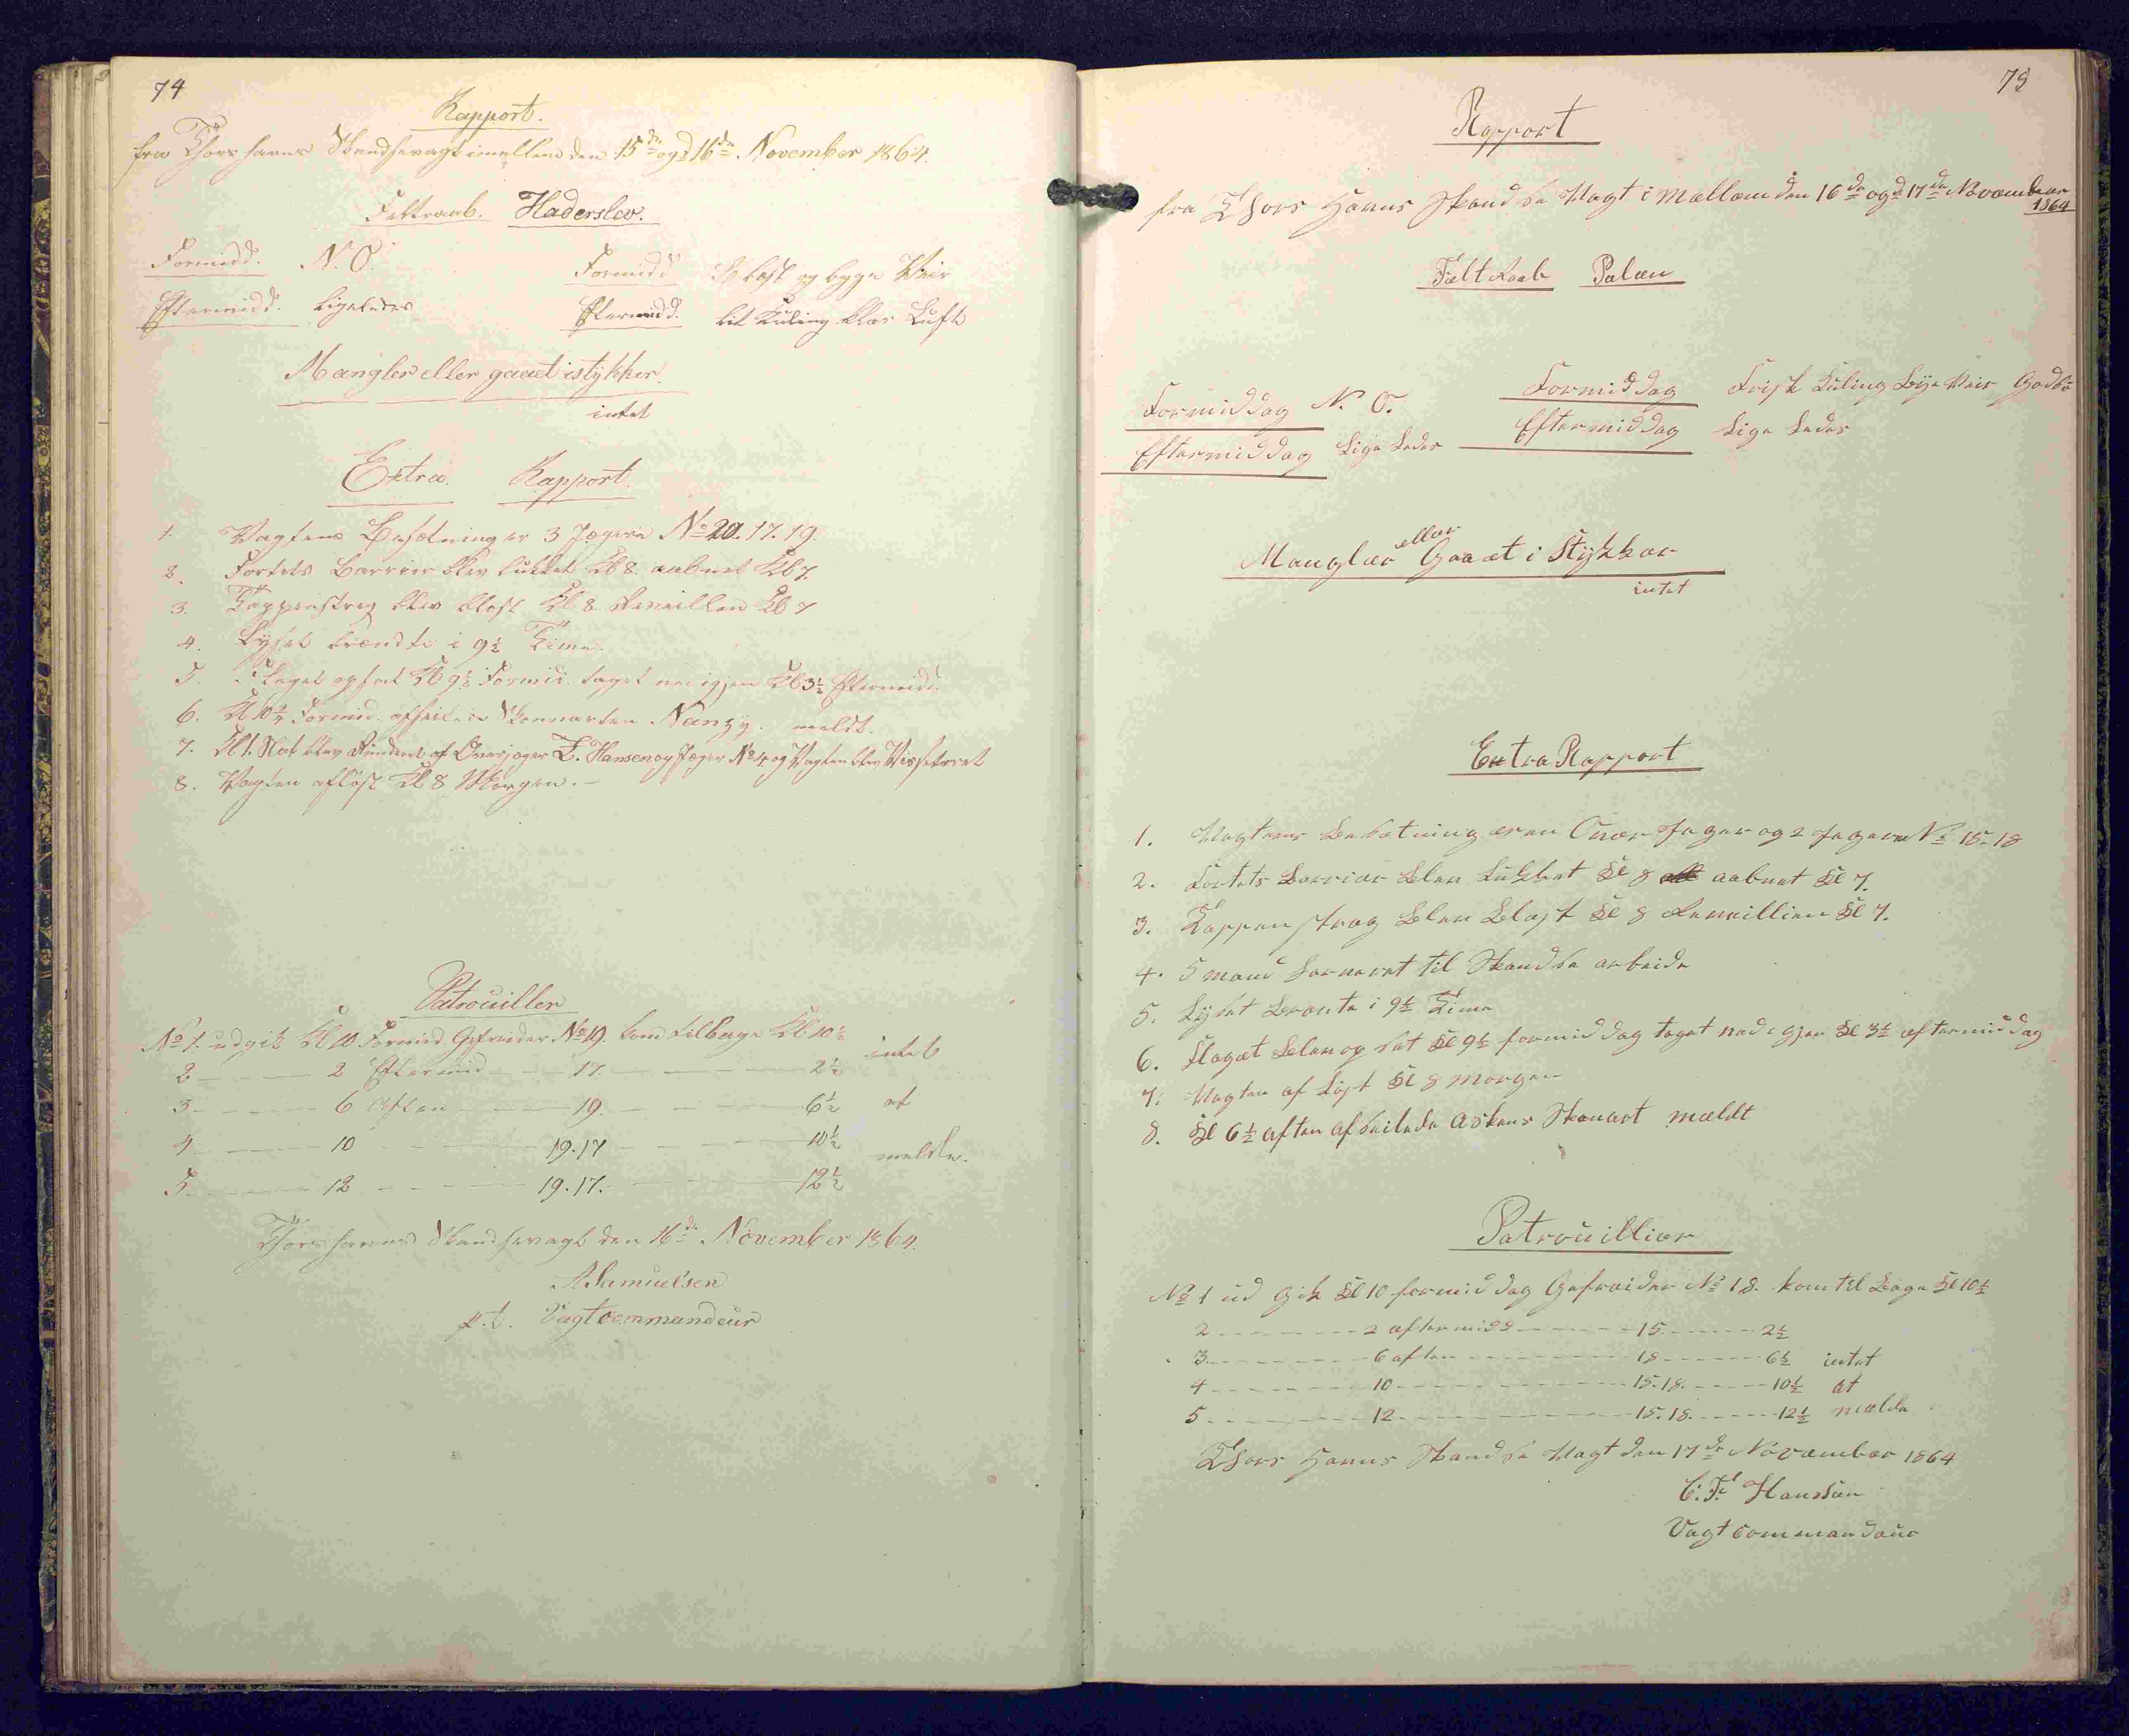 74
Rapport.
fra Thorshavns Skandsevagt imellem den 15de og 16de November 1864.
Feltraab. Haderslev.
Formidd. N.O. Formidd. Blæst og byge Veir
Eftermidd. ligeledes Eftermidd. lit Kuling klar Luft
Mangler eller gaaet istykker.
intet
Extra Rapport.
1. Vagtens Besætning er 3 Jægere No 20. 17. 19.
2. Fortets Barrier blev lukket Kl 8. aabnet Kl 7.
3. Tappenstreg blev blæst Kl 8. Reveillen Kl 7
4. Lyset brændte i 9½ Time.
5. Flaget opsat Kl 9½ Formid. taget ned igjen Kl 3½ Eftermidd.
6. Kl 10½ Formid. afseilede Skonnarten Nanzy. meldt.
7. Kl 1. Nat blev Runderet af Overjæger E. Hansen og Jæger No 4 og Vagten blev Visiteret
8. Vagten afløst Kl 8 Morgen.
Patrouiller
No 1. udgik Kl 10 Formid. Gefreider No 19. kom tilbage Kl 10½
2 2 Eftermid 17. 2½ intet
3 6 Aften 19. 6½ at
4 10 19.17 10½
5. 12 19.17. 12½ melde.
Thorshavns Skandsevagt den 16de November 1864.
A Samuelsen
p.t. Vagtcommandeur
75
Rapport
fra Thors Havns Skandse Vagt i Mællem den 16de og 17de November
1864
Feltraab Palæn
Formiddag N. O. Formiddag Frisk Kuling Byge Veir
Eftermiddag Lige Ledes Eftermiddag Lige Ledes
Mangler eller Gaaet i Stykker
intet
Extra Rapport
1. Vagtens Besætning er en Over Jæger og 2 Jægere No 15. 18
2. Fortets Barrier blev Lukket Kl 8 aabnet Kl 7.
3. Tappenstreg blev blæst Kl 8 Reveillien Kl 7.
4. 5 mand Leveret til Skandse arbeide
5. Lyset brænte i 9½ Time
6. Flaget blev op sat Kl 9½ formiddag taget ned igjen Kl 3½ eftermiddag
7. Vagten af Løst Kl 8 morgen
8. Kl 6½ aften af seilede Askens Skonart mældt
Patrouillier
No 1 ud gik Kl 10 formiddag Gefreider No 18. kom til bage Kl 10½
2 2 eftermidd 15 2½
3 6 aften 18 6½ intet
4 10 15.18. 10½ at
5 12 15.18. 12½ mælde
Thors Havns Skandse Vagt den 17de November 1864
C. F. Hansen
Vagtcommandeur